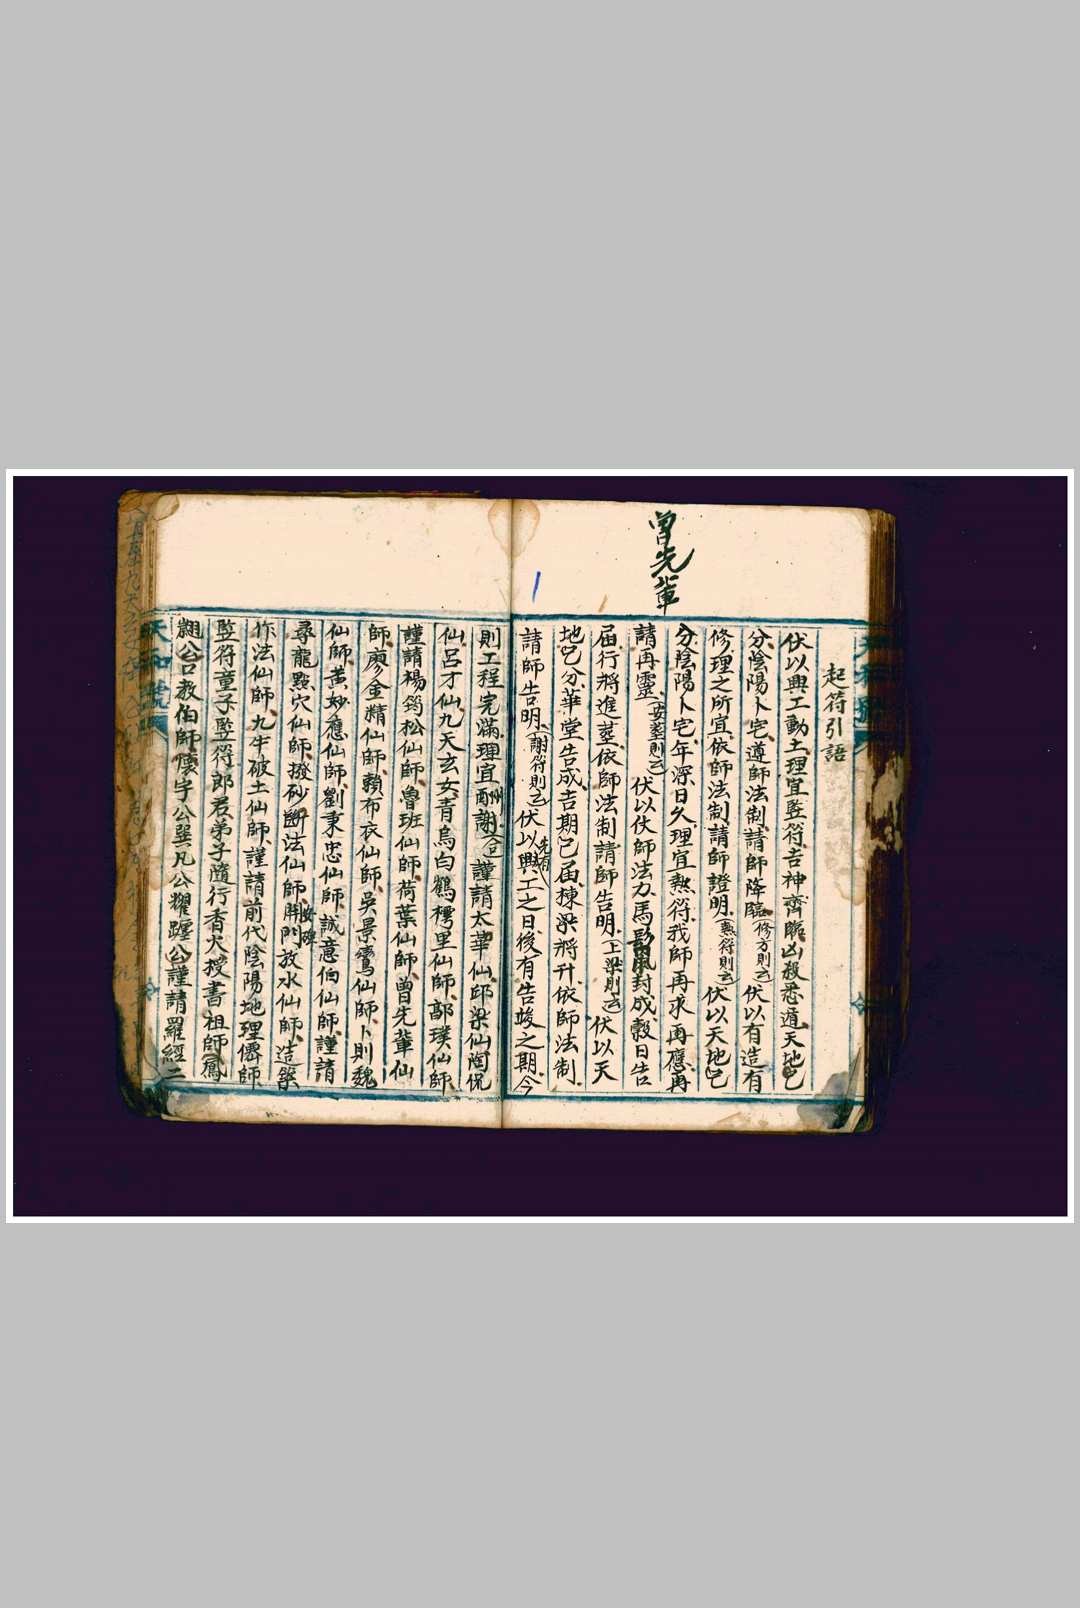 曾先輩
起符引語
伏以興工動土理宜竪符吉神齊臨凶殺悉遁天地已
分陰陽卜宅遵師法制請師降臨(修方則云)伏以有造有
修理之所宜依師法制請師證明(熱符則云)伏以天地已
分陰陽卜宅年深日久理宜熱符我師再求再應再
請再靈(安塟則云)伏以伏師法力馬鬛封成穀日告
届行將進塟依師法制請師告明(上梁則云)伏以天
地已分華堂告成吉期已届棟梁將升依師法制
請師告明(謝符則云)伏以先有興工之日後有告竣之期今
則工程完滿理宜酬謝(合同)謹請太華仙邱梁仙陶侃
仙呂才仙九天玄女青烏白鶴樗里仙師郭璞仙師
謹請楊筠松仙師魯班仙師荷葉仙師曾先輩仙
師廖金精仙師賴布衣仙師吳景鸞仙師卜則魏
仙師黃妙應仙師劉秉忠仙師誠意伯仙師謹請
尋龍點穴仙師撥砂斷法仙師安碑開門放水仙師造築
作法仙師九牛破土仙師謹請前代陰陽地理儒師
竪符童子竪符郎君弟子隨行香火授書祖師鳳
翩公口教伯師懷宇公巽凡公耀躔公謹請羅經二
天和號